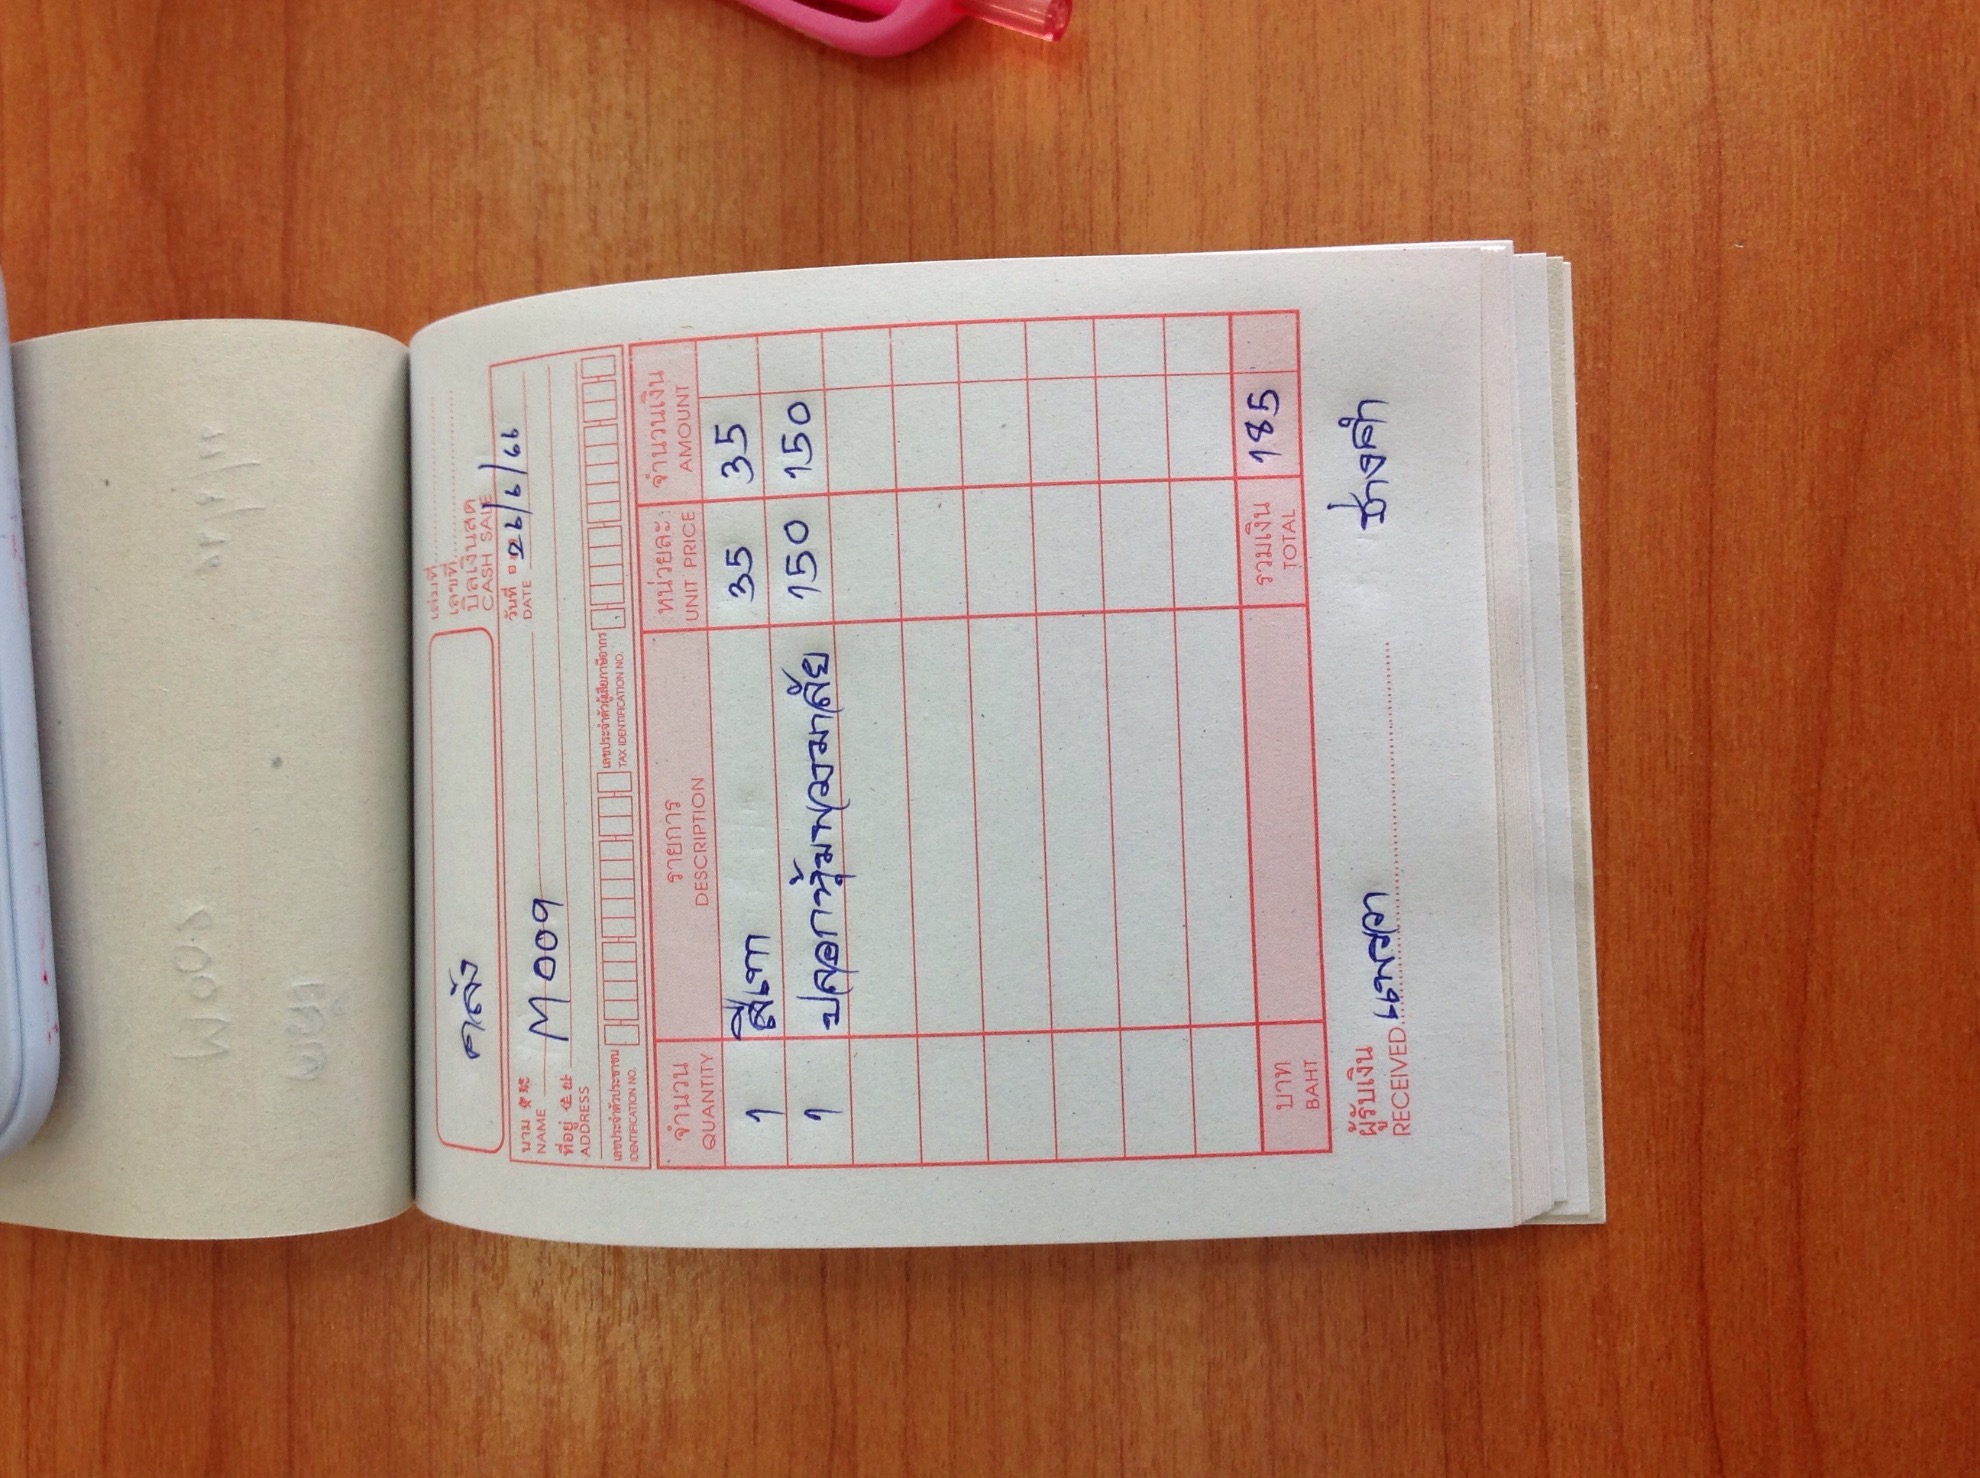 คลัง
เล่มที่
เลขที่
บิลเงินสด
CASH SALE
วันที่ 26/6/66
DATE
นาม M009
NAME
ที่อยู่ 住址
ADDRESS
เลขประจำตัวประชาชน เลขประจำตัวผู้เสียภาษีอากร
IDENTIFICATION NO. TAX IDENTIFICATION NO.
จำนวน รายการ หน่วยละ จำนวนเงิน
QUANTITY DESCRIPTION UNIT PRICE AMOUNT
1 สีเทา 35 35
1 ปลอกหุ้มพวงมาลัย 150 150
บาท รวมเงิน 185
BAHT TOTAL
ผู้รับเงิน แพรวา ช่างคำ
RECEIVED
M009